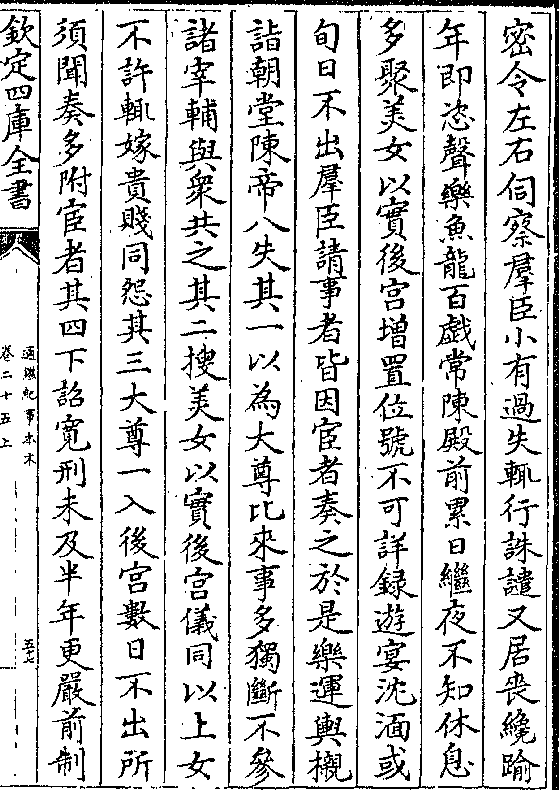 密令左右伺察羣臣小有過失輒行誅譴又居喪纔踰
年即恣聲樂魚龍百戲常陳殿前累日繼夜不知休息
多聚美女以實後宮增置位號不可詳録遊宴沈湎或
旬日不出羣臣請事者皆因宦者奏之於是樂運輿櫬
詣朝堂陳帝八失其一以為大尊比來事多獨斷不參
諸宰輔與衆共之其二搜美女以實後宮儀同以上女
不許輒嫁貴賤同怨其三大尊一入後宮數日不出所
須聞奏多附宦者其四下詔寛刑未及半年更嚴前制
欽定四庫全書
通鑑紀事本末
卷二十五上
五十七